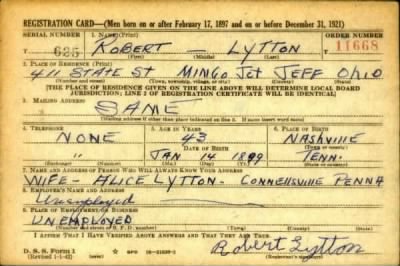 REGISTRATION CARD—(Men born on or after February 17, 1897 and on or before December 31, 1921)
SERIAL NUMBER 1. NAME (Print) ORDER NUMBER
T 635 ROBERT — LYTTON 11668
(First) (Middle) (Last)
2. PLACE OF RESIDENCE (Print)
411 STATE ST MINGO Jct JEFF OHIO
(Number and street) (Town, township, village, or city) (County) (State)
[THE PLACE OF RESIDENCE GIVEN ON THE LINE ABOVE WILL DETERMINE LOCAL BOARD
JURISDICTION; LINE 2 OF REGISTRATION CERTIFICATE WILL BE IDENTICAL]
3. MAILING ADDRESS
SAME
[Mailing address if other than place indicated on line 2. If same insert word same]
4. TELEPHONE 5. AGE IN YEARS 6. PLACE OF BIRTH
NONE 43 NASHVILLE
DATE OF BIRTH (Town or county)
" JAN 14 1899 TENN.
(Exchange) (Number) (Mo.) (Day) (Yr.) (State or country)
7. NAME AND ADDRESS OF PERSON WHO WILL ALWAYS KNOW YOUR ADDRESS
WIFE — ALICE LYTTON - CONNELLSVILLE PENNA
8. EMPLOYER'S NAME AND ADDRESS
Unemployed
9. PLACE OF EMPLOYMENT OR BUSINESS
UNEMPLOYED
(Number and street or R. F. D. number) (Town) (County) (State)
I AFFIRM THAT I HAVE VERIFIED ABOVE ANSWERS AND THAT THEY ARE TRUE.
D. S. S. Form 1
(Revised 4-1-42) GPO 16—21630-2
Robert Lytton
(Registrant's signature)